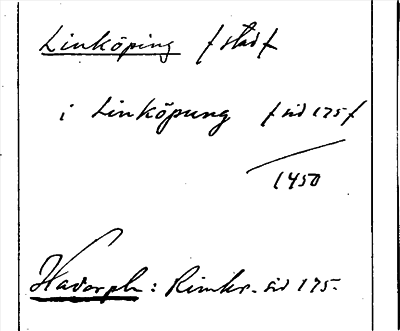 Linköping /stad/
i Linköpung /sid 175/
1450
Hadorph: Rimkr. sid 175.